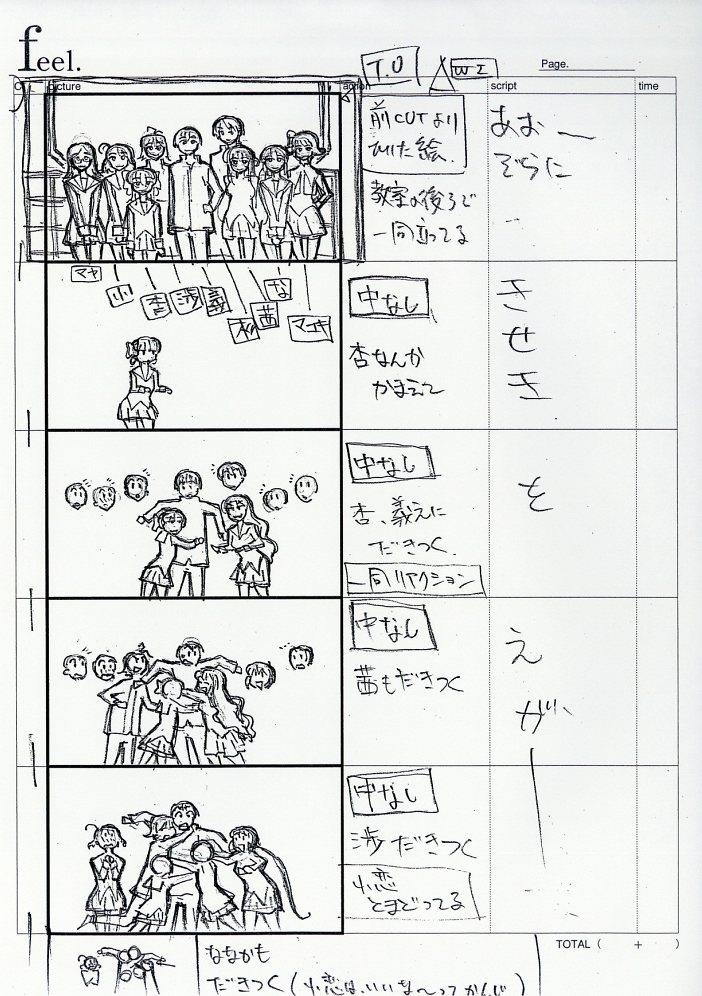 feel.
T.U
WI
Page.
picture
action
script
time
前CUTより
ひいた絵.
教室の後ろで
一同立ってる
あお〜
ぞらに
マヤ
小
杏
渉
義
茜
な
マコキ
中なし
杏なんか
かまえて
き
せ
き
中なし
杏、義えに
だきつく.
一同リアクション
を
中なし
茜もだきつく
え
が
中なし
渉だきつく
小恋
とまどってる
TOTAL ( + )
ななかも
だきつく(小恋は、いいな〜ってかんじ)